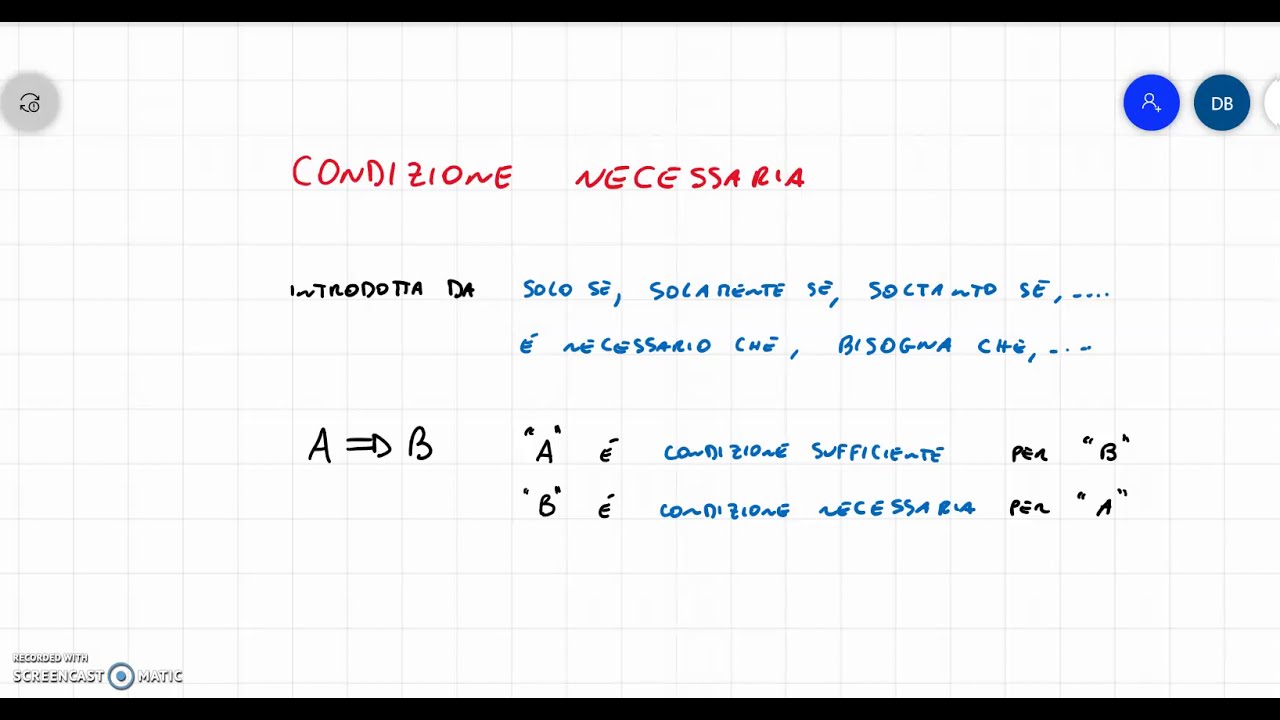 DB
CONDIZIONE NECESSARIA
INTRODOTTA DA SOLO SE, SOLAMENTE SE, SOLTANTO SE, ....
É NECESSARIO CHE, BISOGNA CHE, ....
A ⇒ B "A" É CONDIZIONE SUFFICIENTE PER "B"
"B" É CONDIZIONE NECESSARIA PER "A"
RECORDED WITH
SCREENCAST MATIC